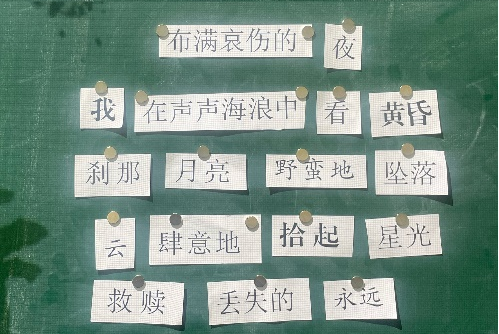 布满哀伤的 夜
我 在声声海浪中 看 黄昏
刹那 月亮 野蛮地 坠落
云 肆意地 拾起 星光
救赎 丢失的 永远